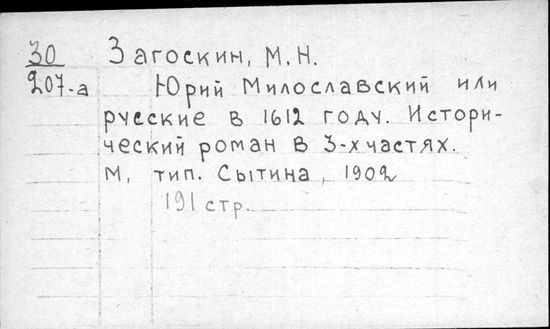 30 Загоскин, М.Н.
207-а Юрий Милославский или
русские в 1612 году. Истори-
ческий роман в 3-х частях.
М, тип. Сытина, 1902
191 стр.